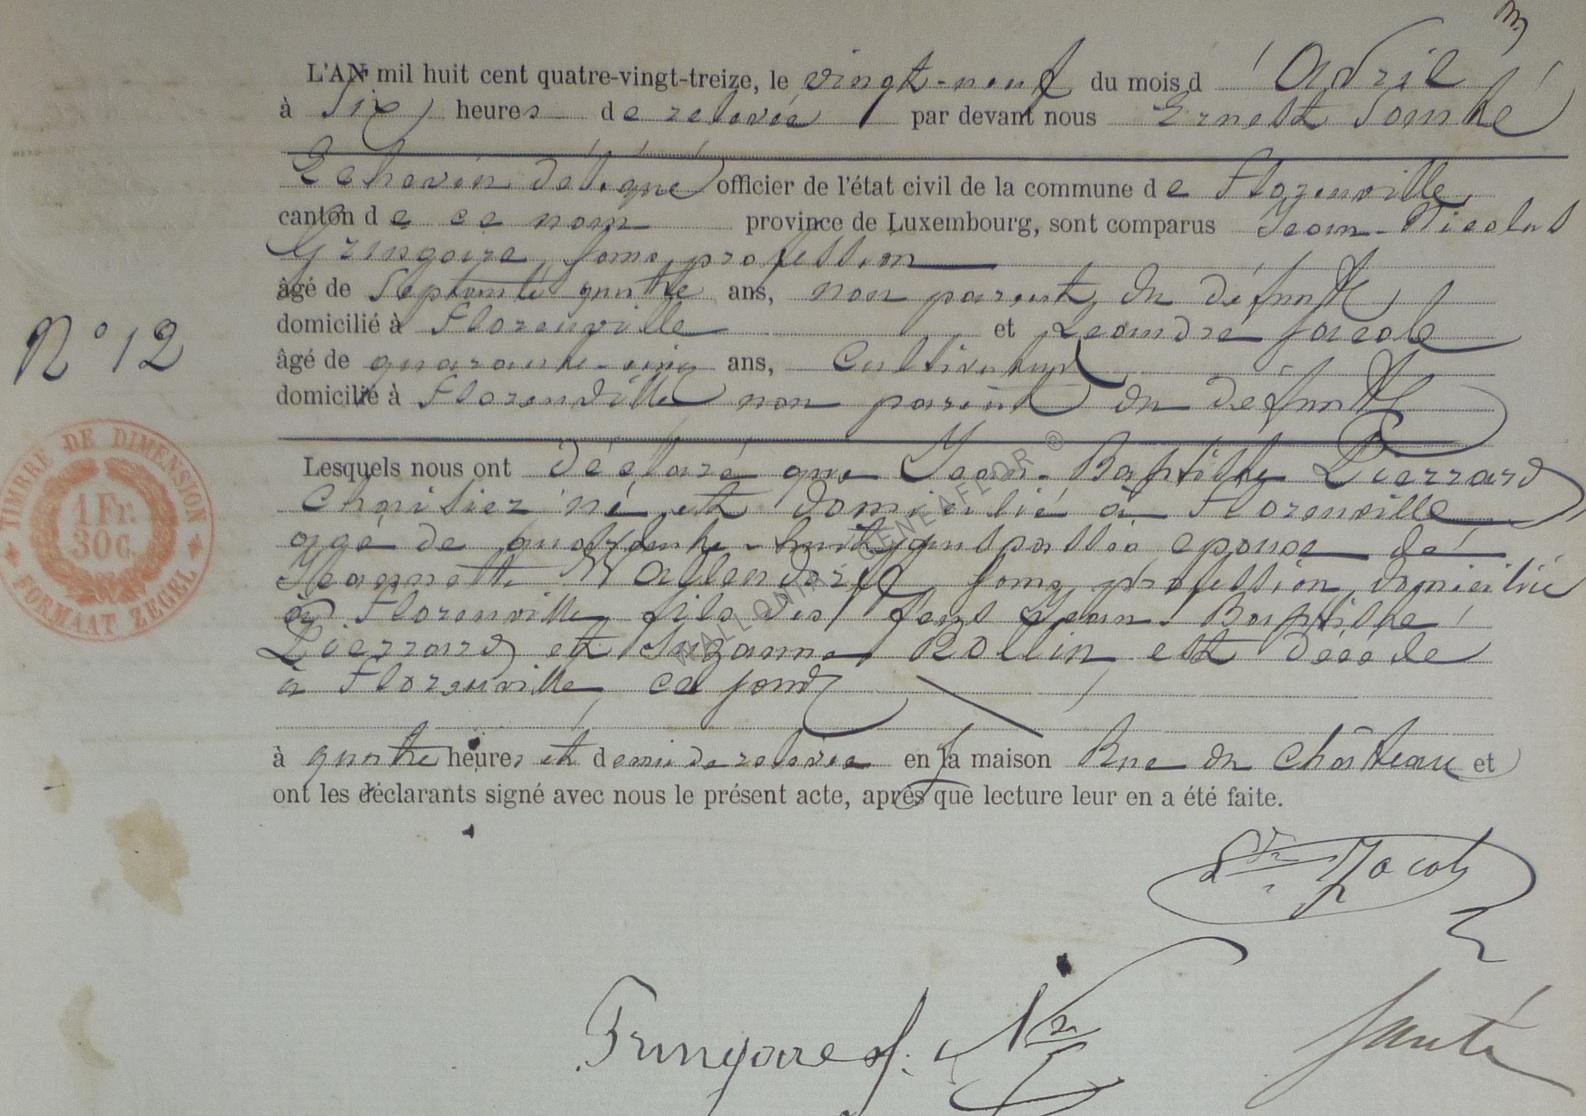 L'AN mil huit cent quatre-vingt-treize, le vingt-neuf du mois d'Avril
à Six heures de relevée par devant nous Ernest
Echevin délégué officier de l'état civil de la commune de Florenville
canton de ce nom province de Luxembourg, sont comparus Jean-Nicolas
Gringoire, sans profession
âgé de Septante quatre ans, non parent du défunt
domicilié à Florenville et Léandre Jacob
âgé de quarante-cinq ans, Cultivateur
domicilié à Florenville non parent du défunt
Lesquels nous ont déclaré que Jean-Baptiste Pierrard
né et domicilié à Florenville
agé de passés époux de
Jeannette sans profession domiciliée
à Florenville fils des feus Jean Baptiste
Pierrard et Suzanne Rollin est décédé
à Florenville ce jourd
à quatre heures et demi de relevée en la maison Rue du Château et
ont les déclarants signé avec nous le présent acte, après que lecture leur en a été faite.
N° 12
TIMBRE DE DIMENSION
1 Fr.
30 C.
FORMAAT ZEGEL
GENEAFLOR ©
Jacob
J. N.